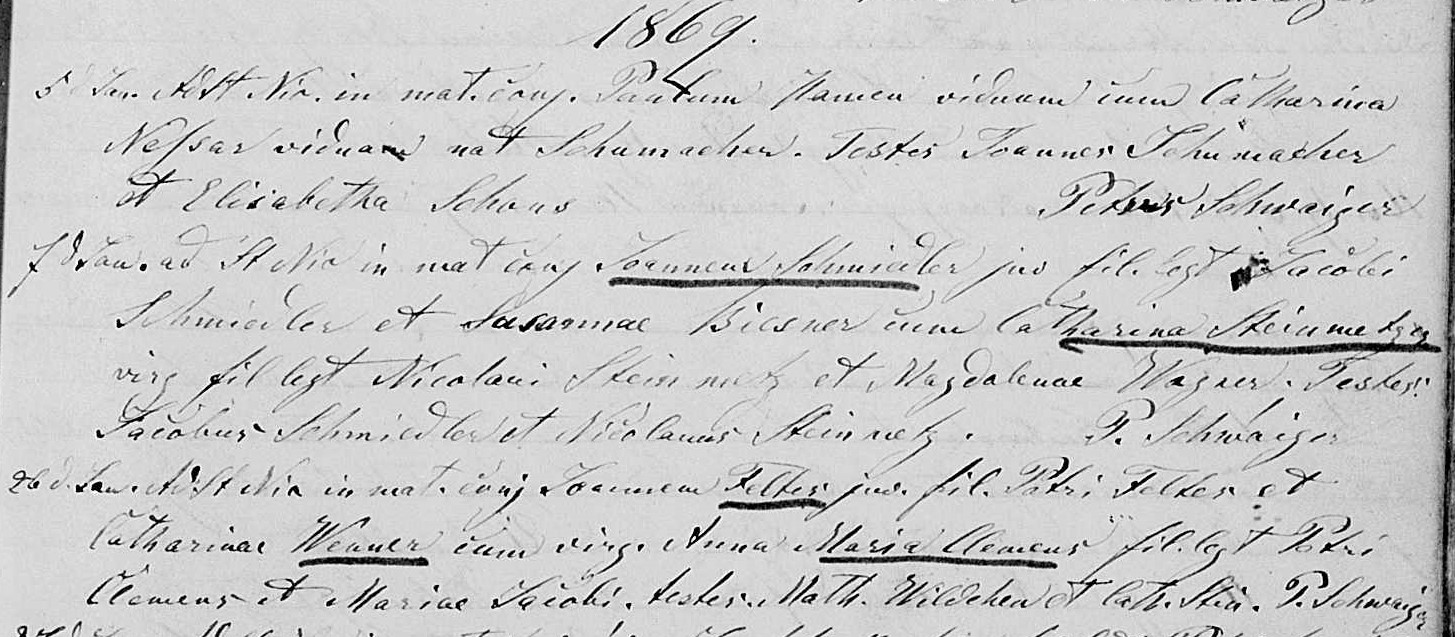 1869.
5 d Jan. Ad St Nic. in mat. conj. Paulum Hamen viduum cum Catharina
Nessar viduam nat Schumacher. Testes Joannes Schumacher
et Elisabetha Schons Petrus Schwaiger
7 d Jan. ad St Nic in mat conj Joannem Schmiedler juv fil. legt Jacobi
Schmiedler et Susannae Biesner cum Catharina Steinmetz
virg fil legt Nicolaui Steinmetz et Magdalenae Wagner. Testes:
Jacobus Schmiedler et Nicolaus Steinmetz. P. Schwaiger
26 d. Jan. Ad St Nic in mat. conj Joannem Feltes juv. fil. Petri Feltes et
Catharinae Wenner cum virg. Anna Maria Clemens fil. legt Petri
Clemens et Mariae Jacobi. testes. Math. Wildchen et Cath. Stein. P. Schwaiger